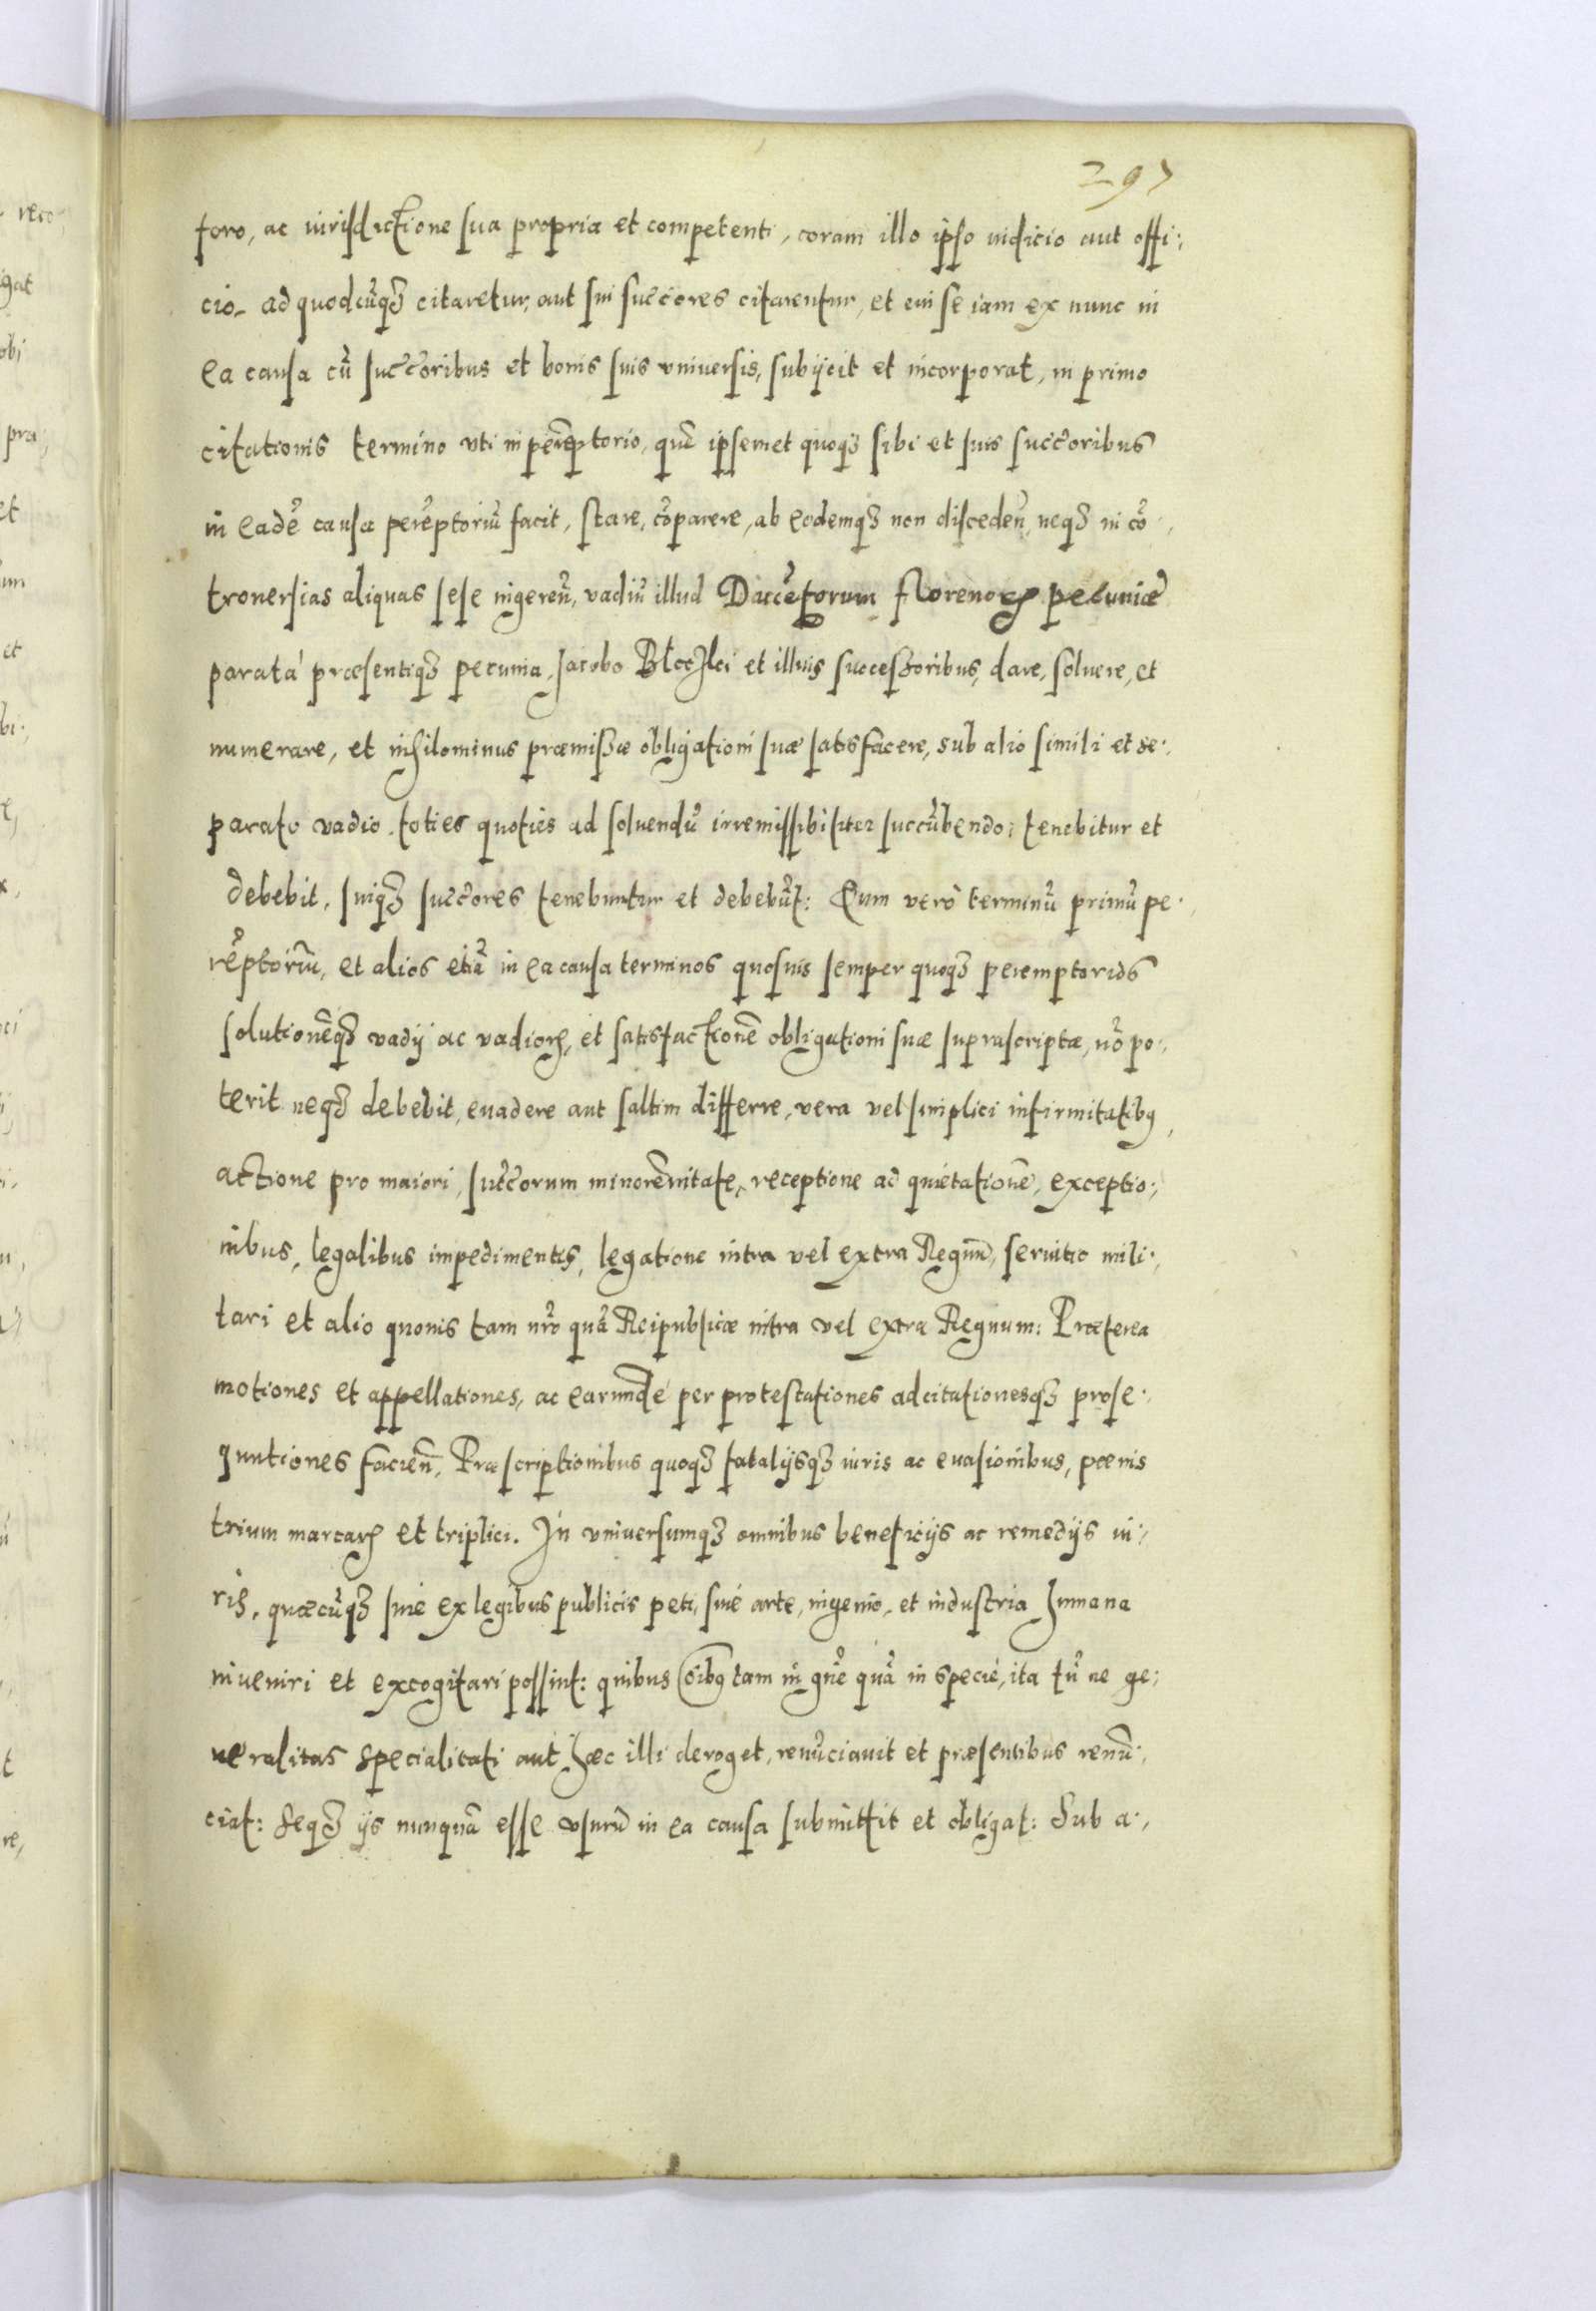 297
foro, ac iurisdictione sua propria et competenti, coram illo ipso iudicio aut offi:,
cio, ad quodcũqʒ citaretur, aut sui succ̃ores citarentur, et cui se iam ex nunc in
ea causa cũ succ̃oribus et bonis suis vniuersis, subijcit et incorporat, in primo
citationis termino vti in perẽptorio, quẽ ipsemet quoqʒ sibi et suis succ̃oribus
in eadẽ causa perẽptoriũ facit, stare, cõparere, ab eodemqʒ non disceden̄, neqʒ in cõ:,
trouersias aliquas sese ingeren̄, vadiũ illud Ducẽtorum florenoꝝ pecuniæ
parata præsentiqʒ pecunia, Jacobo et illius successoribus, dare, soluere, et
numerare, et nihilominus præmissæ obligationi suæ satisfacere, sub alio simili et se:,
parato vadio, toties quoties ad soluendũ irremissibiliter succũbendo, tenebitur et
debebit, suiqʒ succ̃ores tenebuntur et debebũt: Cum vero terminũ primũ pe:,
rẽptoriũ, et alios etiã in ea causa terminos quosuis semper quoqʒ peremptorios
solutionẽqʒ vadij ac vadioꝝ, et satisfactionẽ obligationi suæ suprascriptæ, nõ po:,
terit neqʒ debebit, euadere aut saltim differre, vera vel simplici infirmitatibꝰ,
actione pro maiori, succ̃orum minorẽnitate, receptione ad quietationẽ, exceptio:,
nibus, legalibus impedimentis, legatione intra vel extra Regnũ, seruitio mili:,
tari et alio quouis tam nr̃o quã Reipublicæ intra vel extra Regnum: Præterea
motiones et appellationes, ac earundẽ per protestationes adcitationesqʒ prose:,
quutiones facien̄, Præscriptionibus quoqʒ fatalijsqʒ iuris ac euasionibus, pœnis
trium marcaꝝ et triplici. In vniuersumqʒ omnibus beneficijs ac remedijs iu:,
ris, quæcũqʒ siue ex legibus publicis peti, siue arte, ingenio, et industria humana
inueniri et excogitari possint: quibus oĩbꝰ tam in gñe quã in specie, ita tñ ne ge:,
neralitas specialitati aut hæc illi deroget, renũciauit et præsentibus renũ:,
ciat: Seqʒ ijs nunquã esse vsurũ in ea causa submittit et obligat: Sub a:,